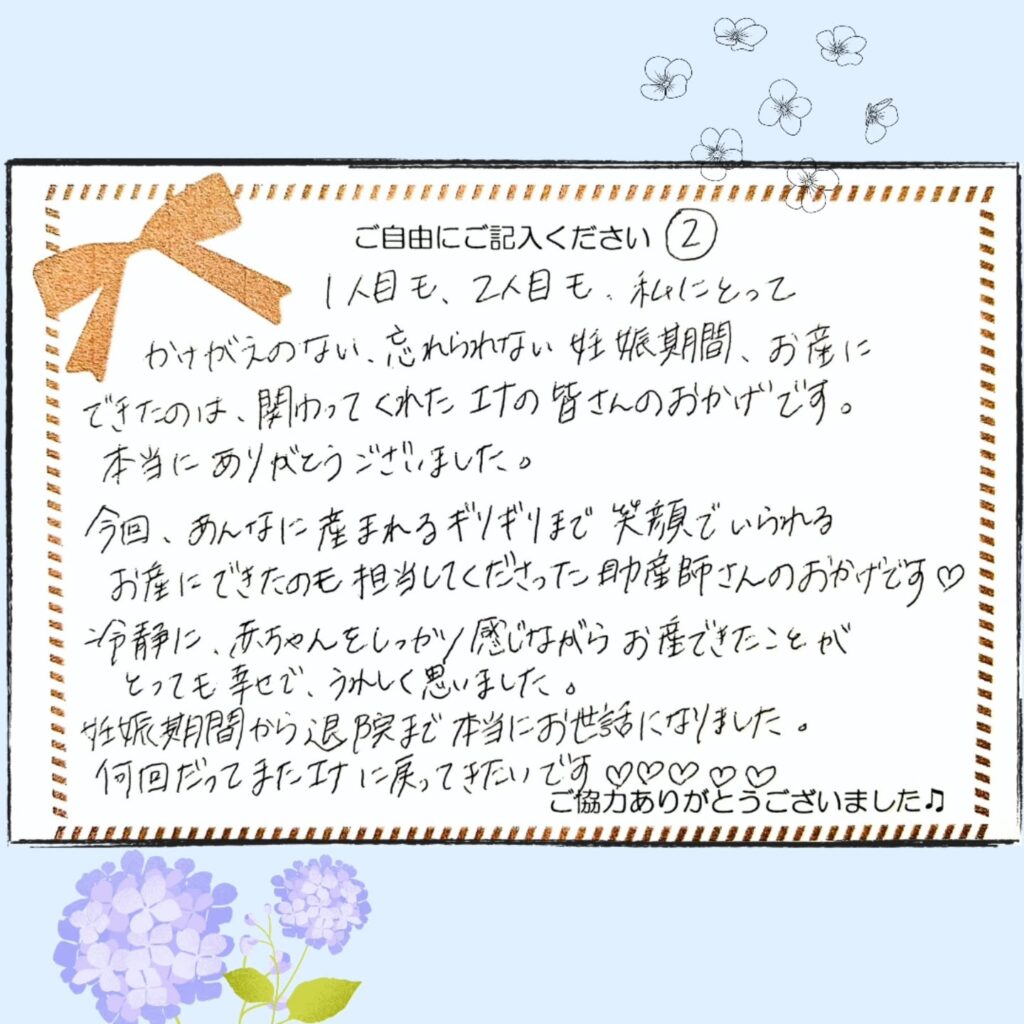 ご自由にご記入ください ②
1人目も、2人目も、私にとって
かけがえのない、忘れられない 妊娠期間、お産に
できたのは、関わってくれた エナの皆さんのおかげです。
本当にありがとうございました。
今回、あんなに産まれるギリギリまで 笑顔でいられる
お産にできたのも 担当してくださった 助産師さんのおかげです♡
冷静に、赤ちゃんをしっかり感じながら お産できたことが
とっても幸せで、うれしく思いました。
妊娠期間から退院まで 本当にお世話になりました。
何回だってまたエナに戻ってきたいです♡♡♡♡♡
ご協力ありがとうございました♫